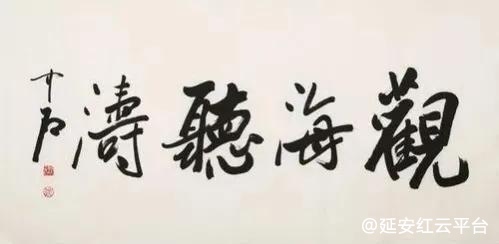 觀海聽濤
中石
@延安红云平台